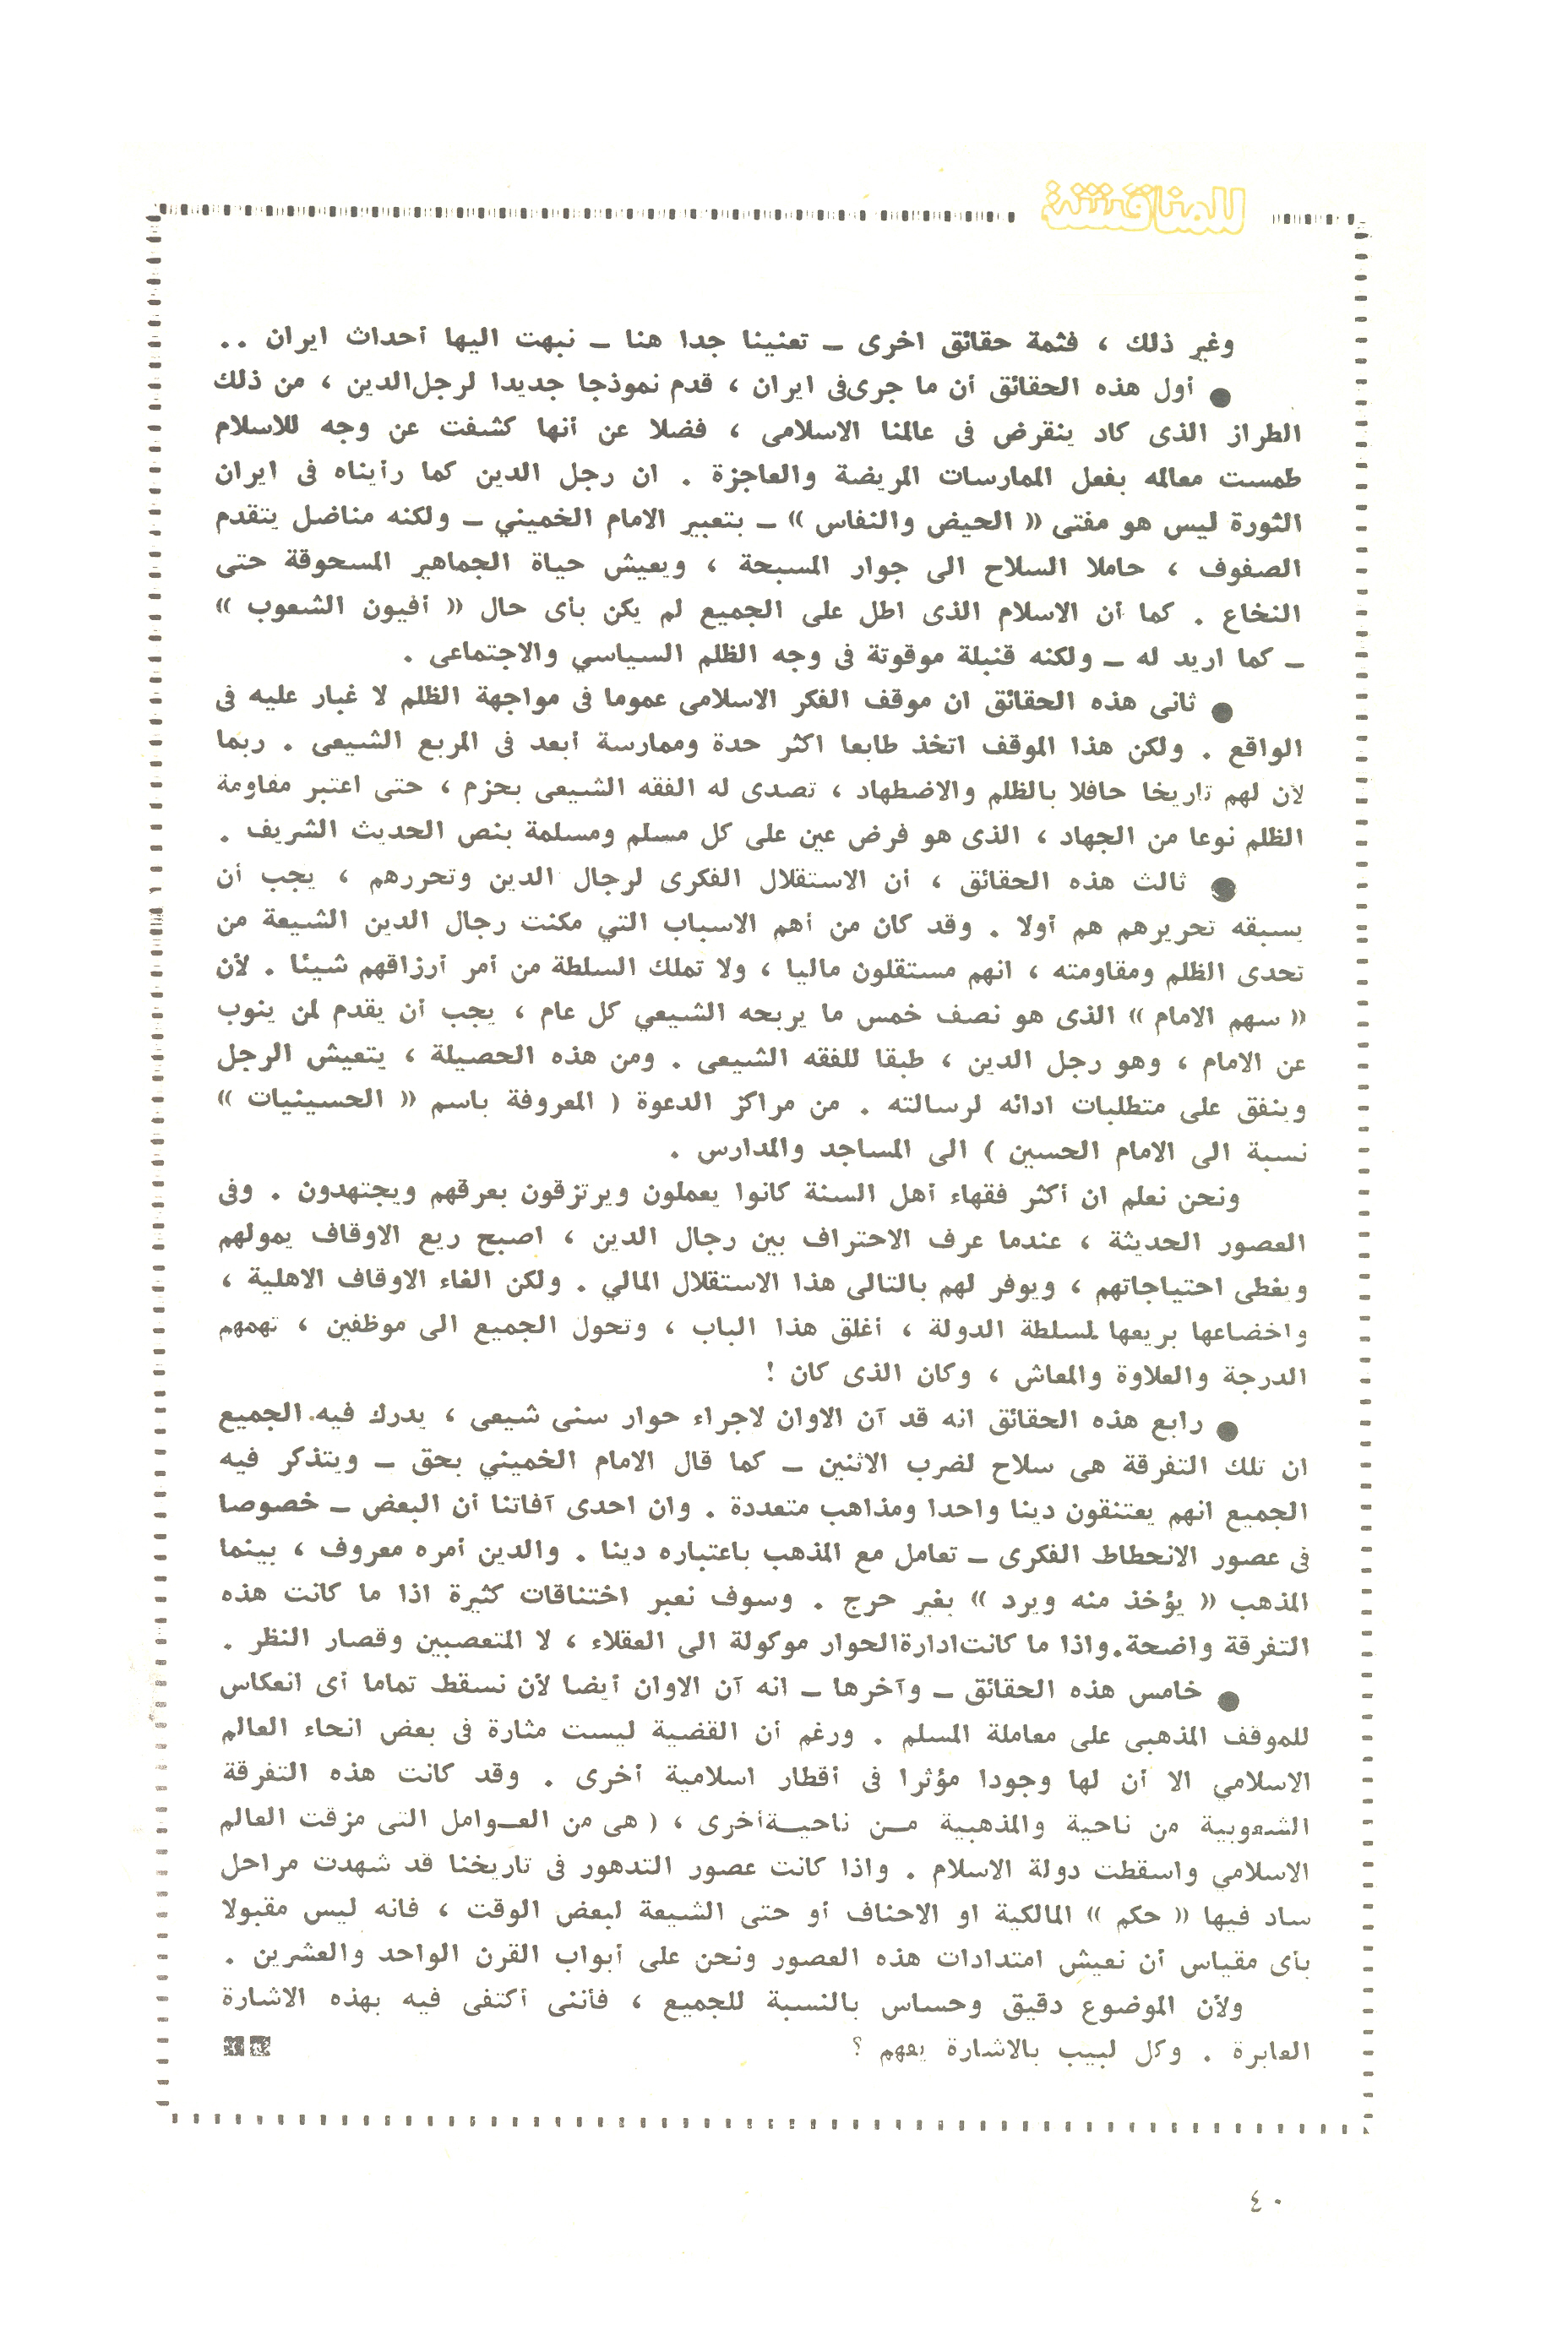 للمناقشة
وغير ذلك ، فثمة حقائق اخرى ــ تعنينا جدا هنا ــ نبهت اليها أحداث ايران ..
● أول هذه الحقائق أن ما جرى فى ايران ، قدم نموذجا جديدا لرجل الدين ، من ذلك
الطراز الذى كاد ينقرض فى عالمنا الاسلامى ، فضلا عن أنها كشفت عن وجه للاسلام
طمست معالمه بفعل الممارسات المريضة والعاجزة . ان رجل الدين كما رأيناه فى ايران
الثورة ليس هو مفتى (( الحيض والنفاس )) ــ بتعبير الامام الخميني ــ ولكنه مناضل يتقدم
الصفوف ، حاملا السلاح الى جوار المسبحة ، ويعيش حياة الجماهير المسحوقة حتى
النخاع . كما أن الاسلام الذى اطل على الجميع لم يكن بأى حال (( أفيون الشعوب ))
ــ كما اريد له ــ ولكنه قنبلة موقوتة فى وجه الظلم السياسي والاجتماعى .
● ثانى هذه الحقائق ان موقف الفكر الاسلامى عموما فى مواجهة الظلم لا غبار عليه فى
الواقع . ولكن هذا الموقف اتخذ طابعا اكثر حدة وممارسة أبعد فى المربع الشيعى . ربما
لأن لهم تاريخا حافلا بالظلم والاضطهاد ، تصدى له الفقه الشيعى بحزم ، حتى اعتبر مقاومة
الظلم نوعا من الجهاد ، الذى هو فرض عين على كل مسلم ومسلمة بنص الحديث الشريف .
● ثالث هذه الحقائق ، أن الاستقلال الفكرى لرجال الدين وتحررهم ، يجب أن
يسبقه تحريرهم هم أولا . وقد كان من أهم الاسباب التي مكنت رجال الدين الشيعة من
تحدى الظلم ومقاومته ، انهم مستقلون ماليا ، ولا تملك السلطة من أمر أرزاقهم شيئا . لأن
(( سهم الامام )) الذى هو نصف خمس ما يربحه الشيعي كل عام ، يجب أن يقدم لمن ينوب
عن الامام ، وهو رجل الدين ، طبقا للفقه الشيعى . ومن هذه الحصيلة ، يتعيش الرجل
وينفق على متطلبات ادائه لرسالته . من مراكز الدعوة ( المعروفة باسم (( الحسينيات ))
نسبة الى الامام الحسين ) الى المساجد والمدارس .
ونحن نعلم ان أكثر فقهاء أهل السنة كانوا يعملون ويرتزقون بعرقهم ويجتهدون . وفى
العصور الحديثة ، عندما عرف الاحتراف بين رجال الدين ، اصبح ريع الاوقاف يمولهم
ويغطى احتياجاتهم ، ويوفر لهم بالتالى هذا الاستقلال المالي . ولكن الغاء الاوقاف الاهلية ،
واخضاعها بريعها لسلطة الدولة ، أغلق هذا الباب ، وتحول الجميع الى موظفين ، تهمهم
الدرجة والعلاوة والمعاش ، وكان الذى كان !
● رابع هذه الحقائق انه قد آن الاوان لاجراء حوار سنى شيعى ، يدرك فيه الجميع
ان تلك التفرقة هى سلاح لضرب الاثنين ــ كما قال الامام الخميني بحق ــ ويتذكر فيه
الجميع انهم يعتنقون دينا واحدا ومذاهب متعددة . وان احدى آفاتنا أن البعض ــ خصوصا
فى عصور الانحطاط الفكرى ــ تعامل مع المذهب باعتباره دينا . والدين أمره معروف ، بينما
المذهب (( يؤخذ منه ويرد )) بغير حرج . وسوف نعبر اختناقات كثيرة اذا ما كانت هذه
التفرقة واضحة. واذا ما كانت ادارة الحوار موكولة الى العقلاء ، لا المتعصبين وقصار النظر .
● خامس هذه الحقائق ــ وآخرها ــ انه آن الاوان أيضا لأن نسقط تماما أى انعكاس
للموقف المذهبى على معاملة المسلم . ورغم أن القضية ليست مثارة فى بعض انحاء العالم
الاسلامي الا أن لها وجودا مؤثرا فى أقطار اسلامية أخرى . وقد كانت هذه التفرقة
الشعوبية من ناحية والمذهبية مــن ناحيــة أخرى ، ( هى من العــوامل التى مزقت العالم
الاسلامي واسقطت دولة الاسلام . واذا كانت عصور التدهور فى تاريخنا قد شهدت مراحل
ساد فيها (( حكم )) المالكية او الاحناف أو حتى الشيعة لبعض الوقت ، فانه ليس مقبولا
بأى مقياس أن نعيش امتدادات هذه العصور ونحن على أبواب القرن الواحد والعشرين .
ولأن الموضوع دقيق وحساس بالنسبة للجميع ، فأننى أكتفى فيه بهذه الاشارة
العابرة . وكل لبيب بالاشارة يفهم ؟
٤٠